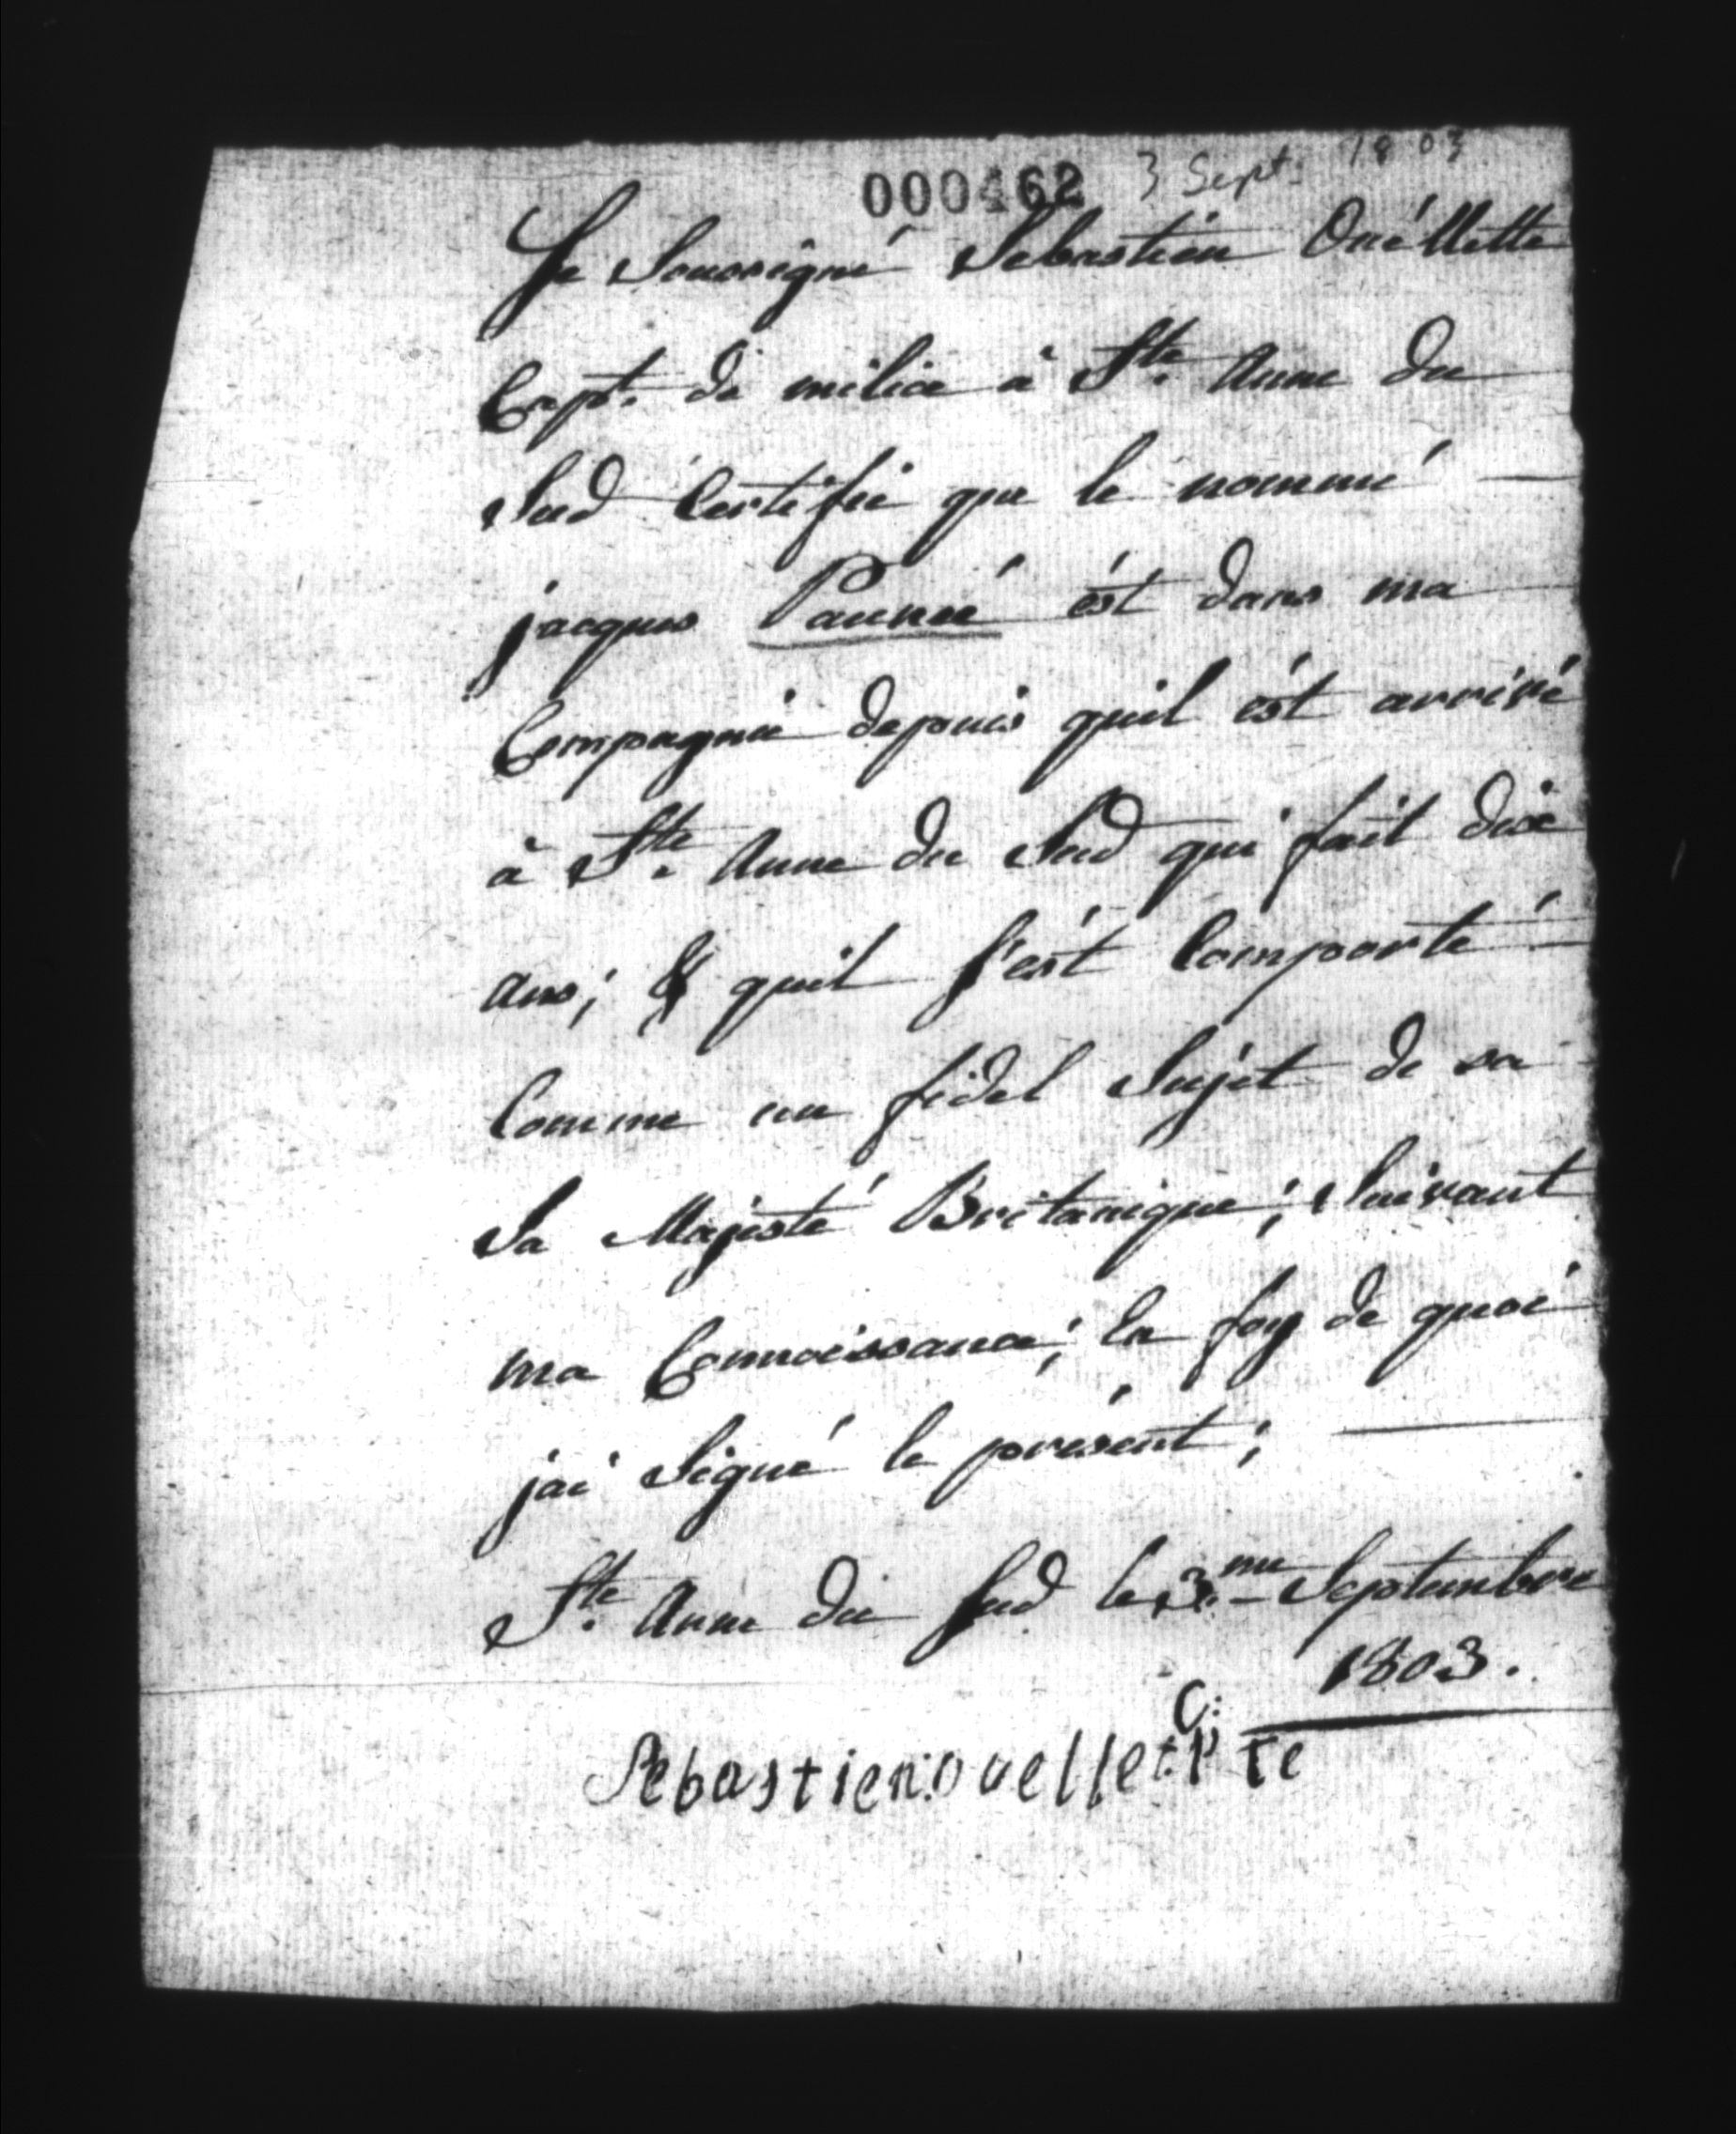 000462 3 Sept. 1803
Je Soussigné Sebastien Ouéllette
Capt. de milice à Ste. Anne du
Sud Certifie que le nommé
jacques Pannée ést dans ma
Compagnie depuis quil ést arrivé
à Ste. Anne du Sud qui fait dice
ans; & quil s'est Comporté
Comme un fidel Sujét de sa
Sa Majesté Britanique; Suivant
ma Connoissance; En foy de quoi
jai Signé le présent;
Ste. Anne du Sud le 3.me Septembre
1803.
Sebastien ouellet C: P te